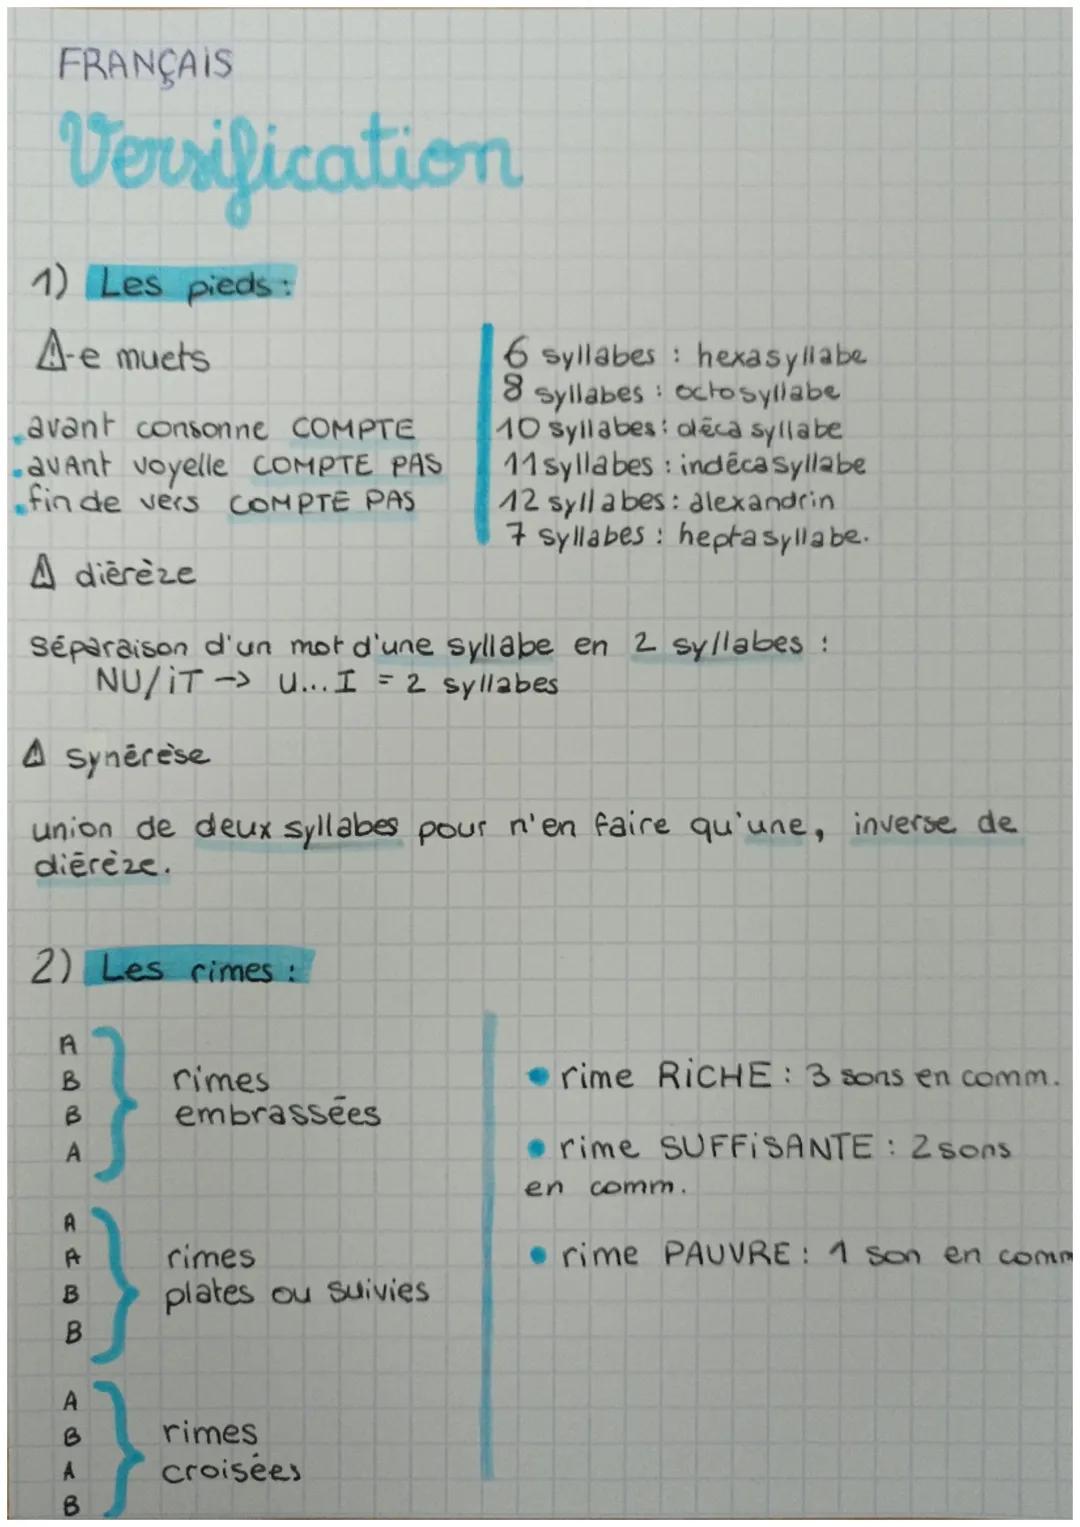 FRANÇAIS
Versification
1) Les pieds :
⚠-e muets
. avant consonne COMPTE
. avant voyelle COMPTE PAS
. fin de vers COMPTE PAS
6 syllabes : hexasyllabe
8 syllabes : octosyllabe
10 syllabes : décasyllabe
11 syllabes : indécasyllabe
12 syllabes : alexandrin
7 syllabes : heptasyllabe.
⚠ diérèze
Séparaison d'un mot d'une syllabe en 2 syllabes :
NU/iT -> U...I = 2 syllabes
⚠ synérèse
union de deux syllabes pour n'en faire qu'une, inverse de
diérèze.
2) Les rimes :
A
B
B
A
rimes
embrassées
A
A
B
B
rimes
plates ou suivies
A
B
A
B
rimes
croisées
• rime RiCHE : 3 sons en comm.
• rime SUFFiSANTE : 2 sons
en comm.
• rime PAUVRE : 1 son en comm